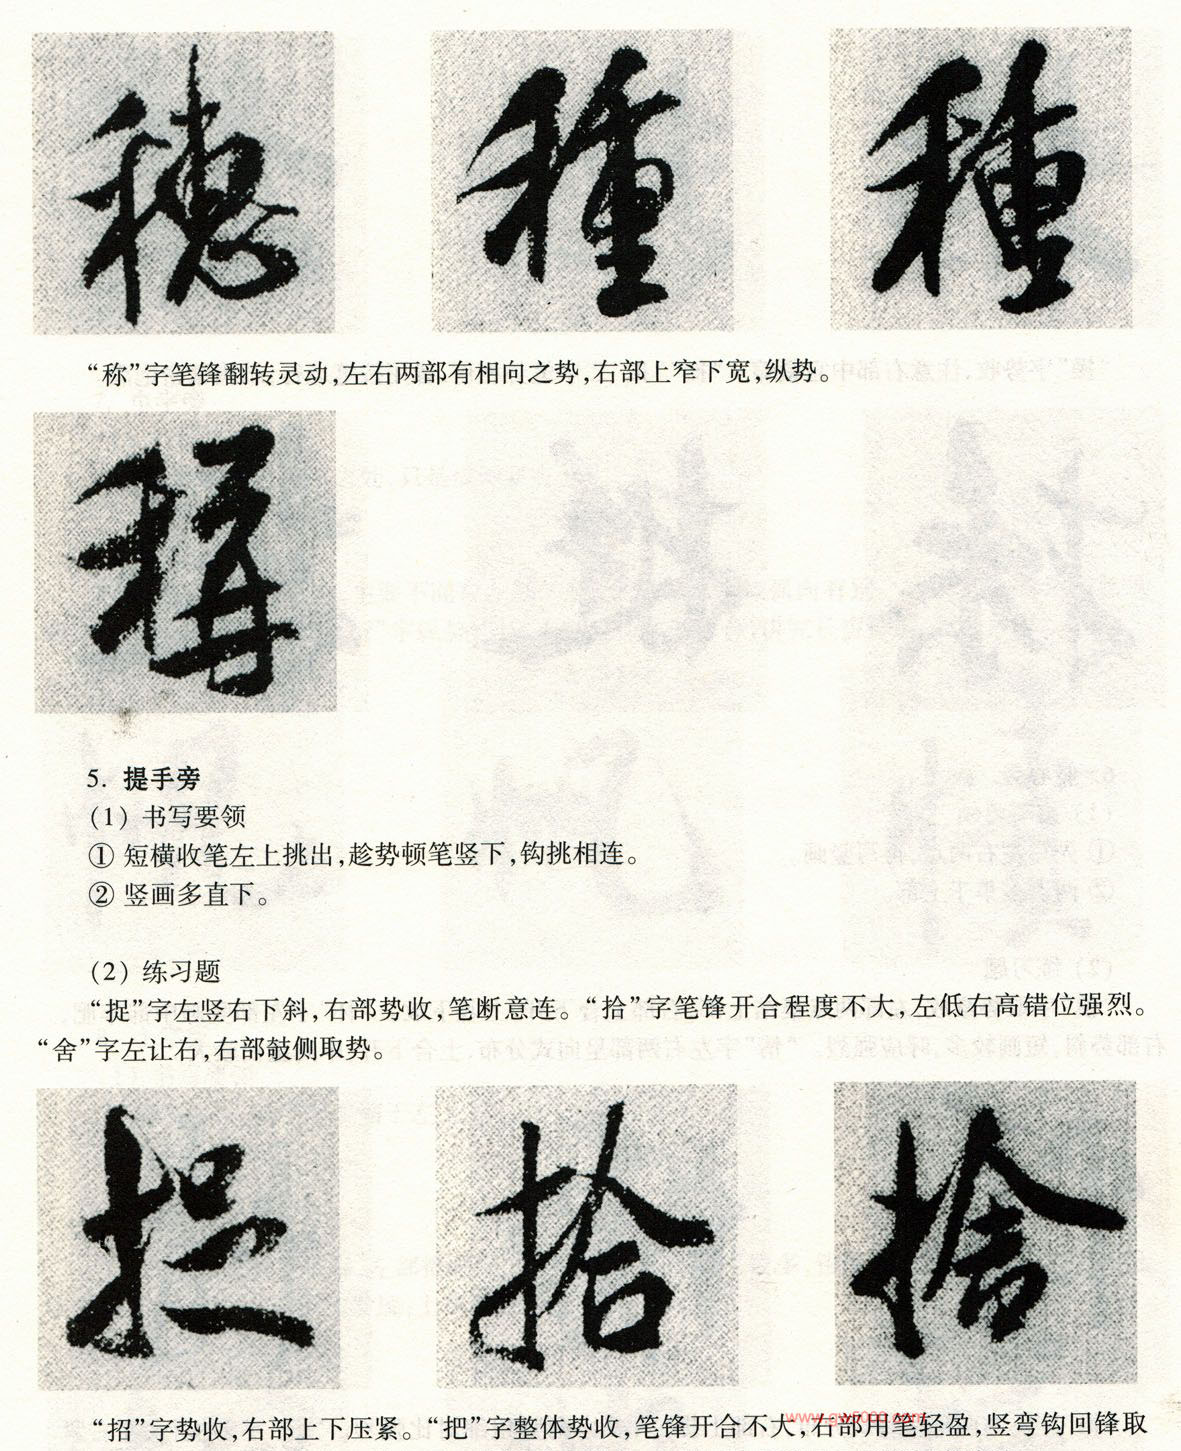 穗 種 種
“称”字笔锋翻转灵动,左右两部有相向之势,右部上窄下宽,纵势。
稱
5. 提手旁
(1) 书写要领
① 短横收笔左上挑出,趁势顿笔竖下,钩挑相连。
② 竖画多直下。
(2) 练习题
“捉”字左竖右下斜,右部势收,笔断意连。“拾”字笔锋开合程度不大,左低右高错位强烈。
“舍”字左让右,右部敧侧取势。
捉 拾 捨
“招”字势收,右部上下压紧。“把”字整体势收,笔锋开合不大,右部用笔轻盈,竖弯钩回锋取